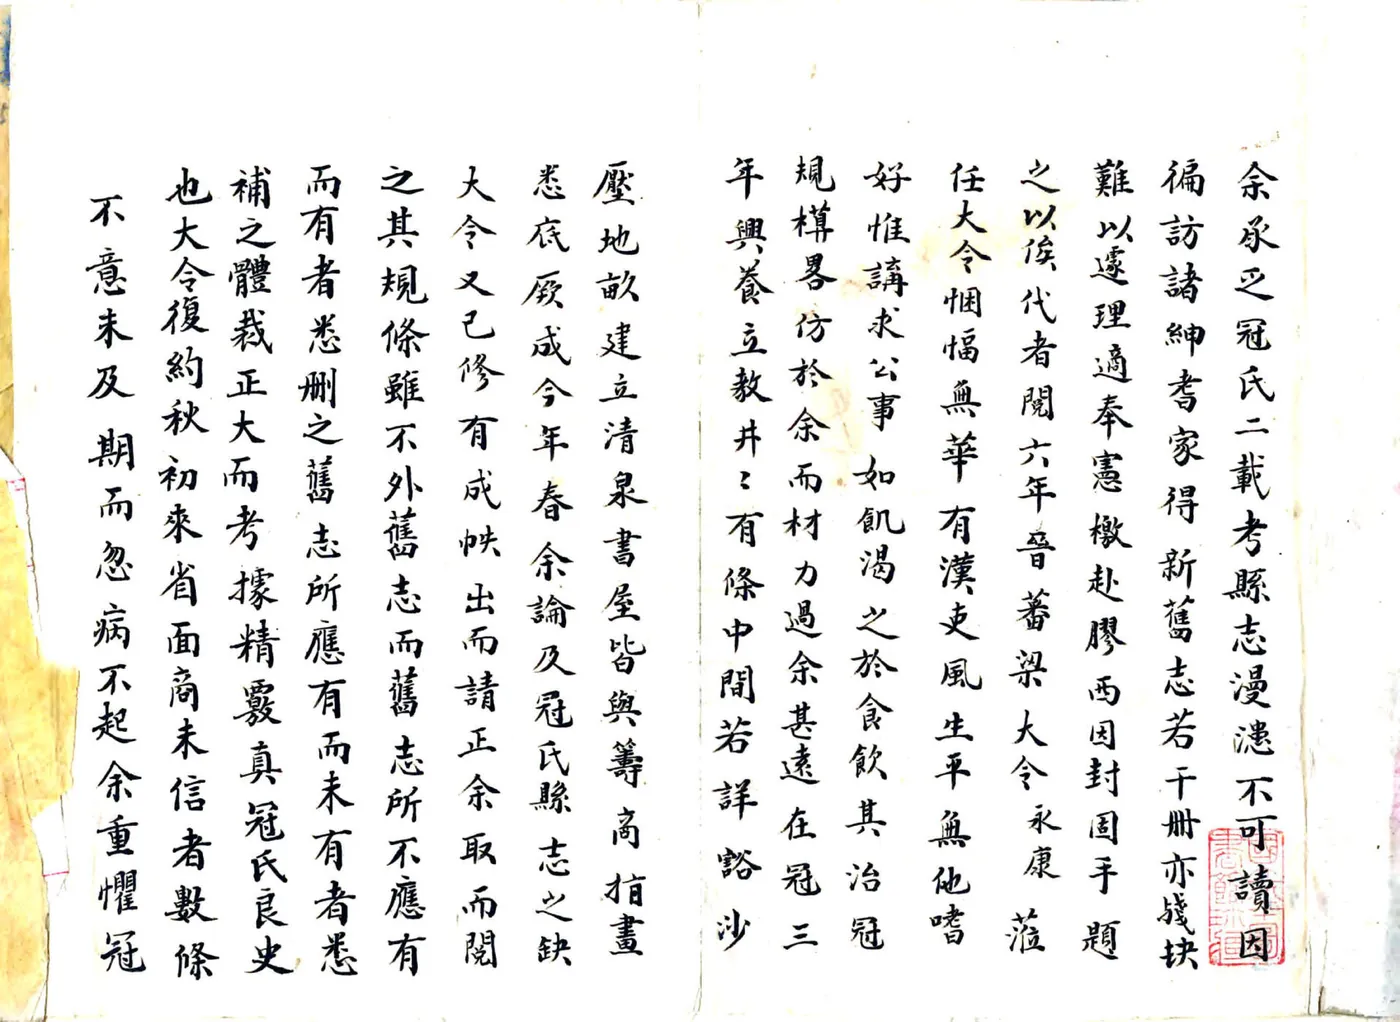 余承乏冠氏二載考縣志漫漶不可讀因
徧訪諸紳耆家得新舊志若干册亦殘抉
難以遽理適奉憲檄赴膠西因封固手題
之以俟代者閱六年晉蕃梁大令永康蒞
任大令悃愊無華有漢吏風生平無他嗜
好惟講求公事如飢渴之於食飲其治冠
規橅畧仿於余而材力過余甚遠在冠三
年興養立教井〻有條中間若詳豁沙
壓地畝建立清泉書屋皆與籌商指畫
悉底厥成今年春余論及冠氏縣志之缺
大令又已修有成帙出而請正余取而閱
之其規條雖不外舊志而舊志所不應有
而有者悉删之舊志所應有而未有者悉
補之體裁正大而考據精覈真冠氏良史
也大令復約秋初來省面商未信者數條
不意未及期而忽病不起余重懼冠